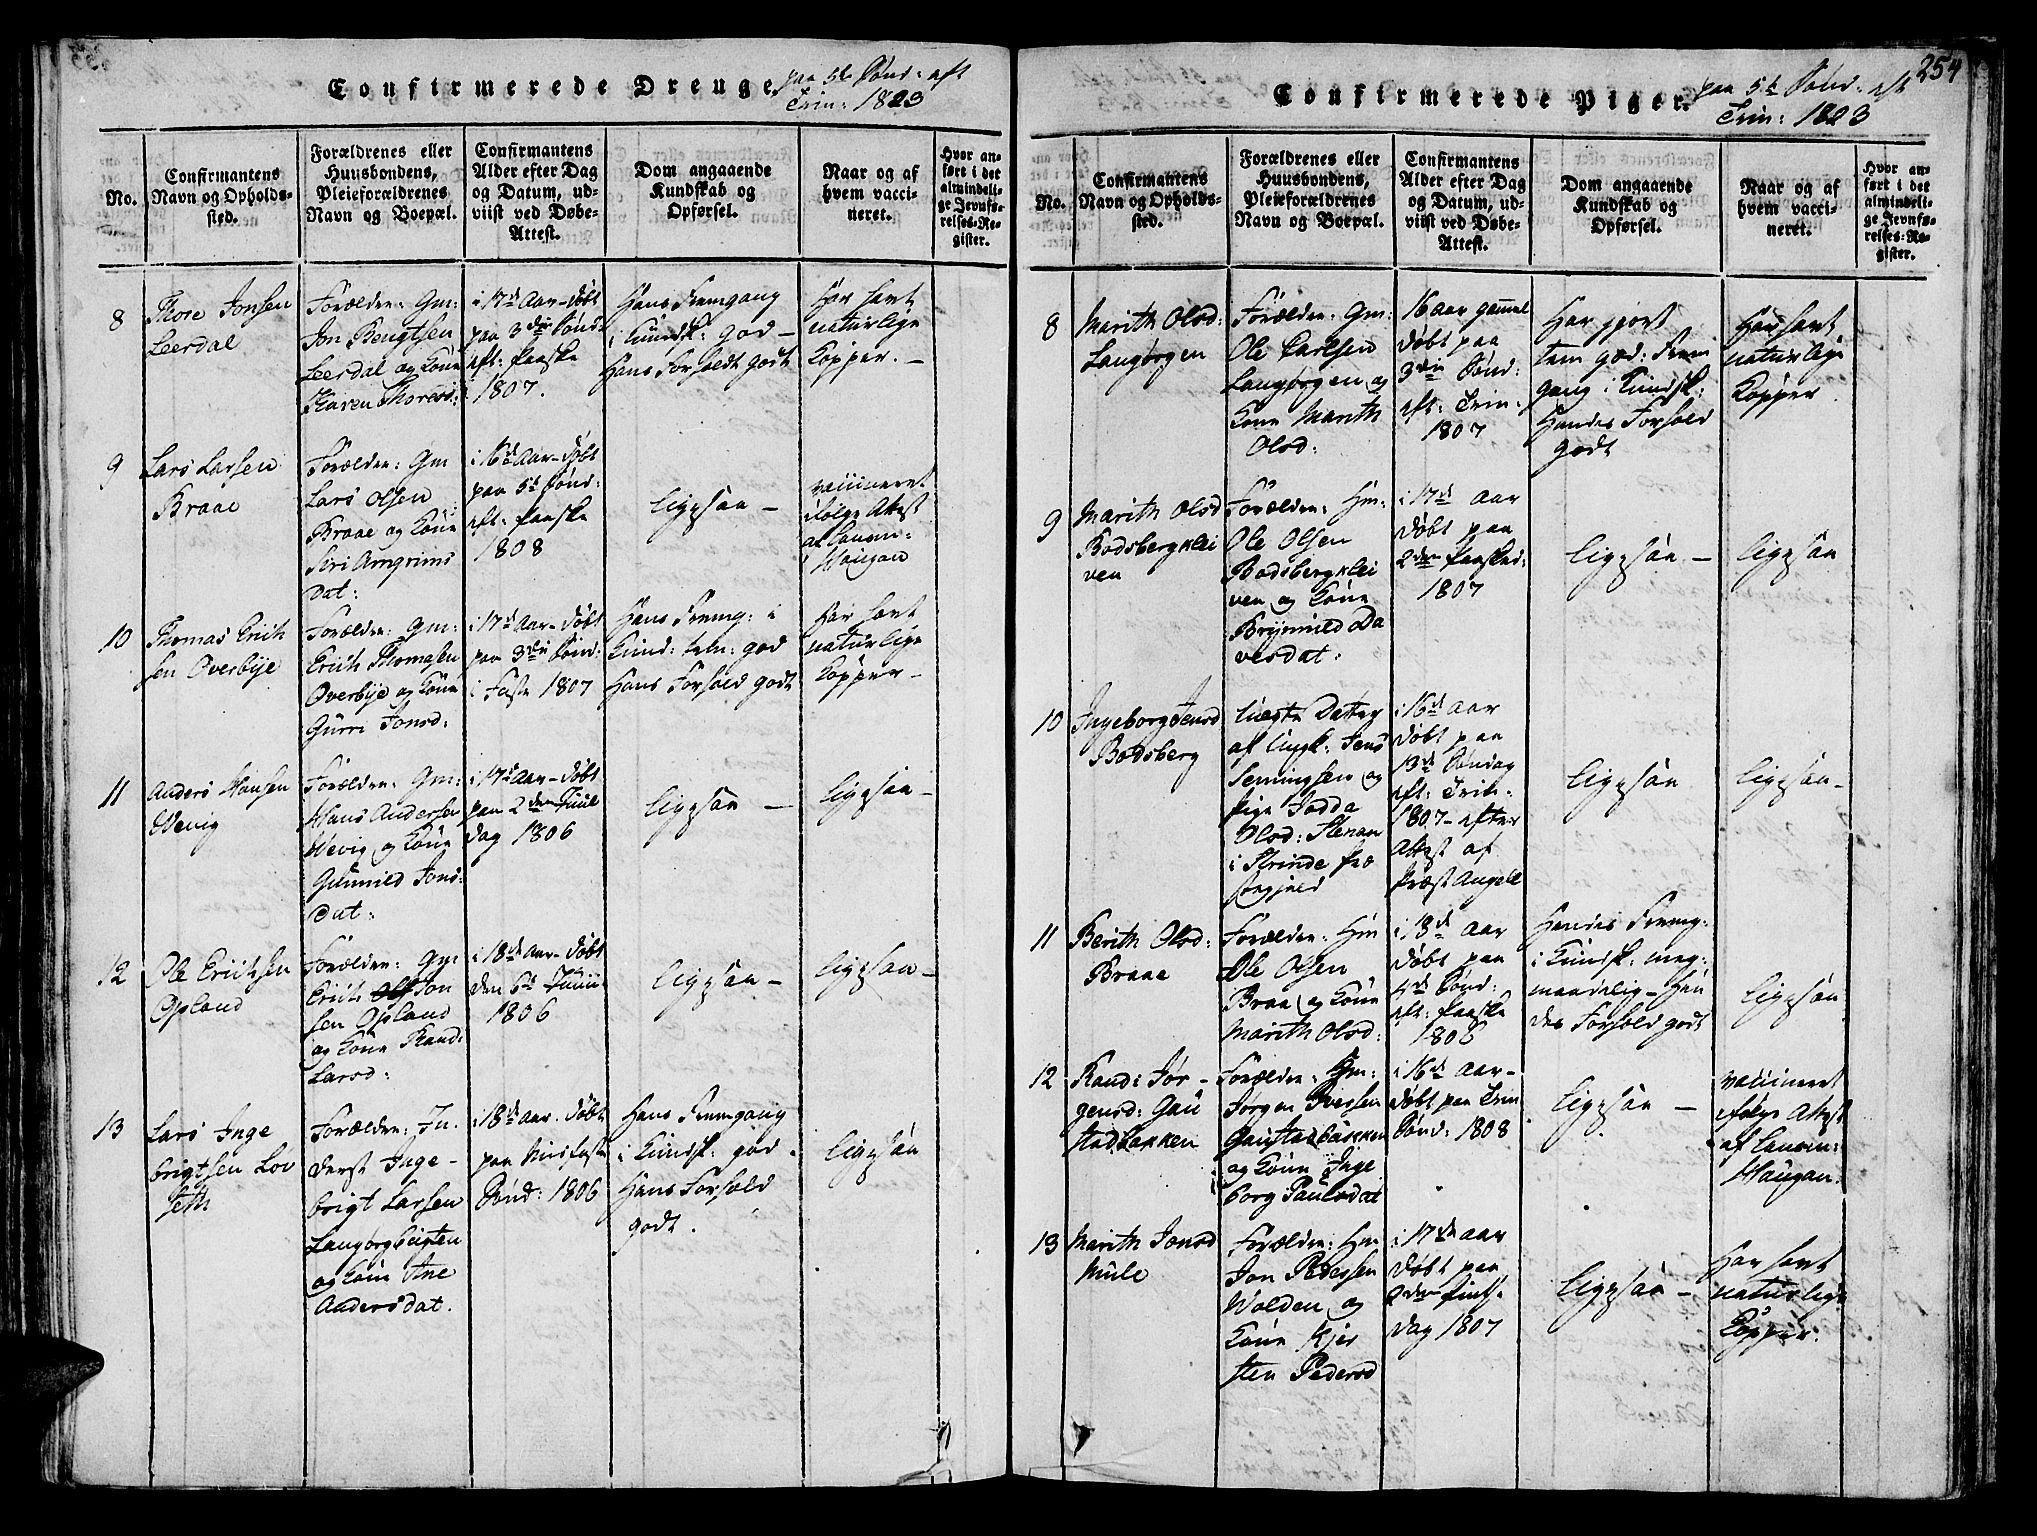 Confirmerede Drenge paa 5te Sønd: eft
Trin: 1823
No.
Confirmantens
Navn og Opholds-
sted.
Forældrenes eller
Huusbondens,
Pleieforældrenes
Navn og Boepæl.
Confirmantens
Alder efter Dag
og Datum, ud-
viist ved Døbe-
Attest.
Dom angaaende
Kundskab og
Opførsel.
Naar og af
hvem vacci-
neret.
Hvor an-
ført i det
almindeli-
ge Jevnfø-
relses-Re-
gister.
8
Thore Jonsen
Leerdal
Forældre: Gm:
Jon Bengtsen
Leerdal og Kone
Karen Thoresd:
i 17d Aar - Døbt
paa 3die Sønd:
eft: Paaske
1807.
Hans Fremgang
i Kundsk: god -
Hans Forholdt godt
Har havt
naturlige
Kopper. -
9
Lars Larsen
Braae
Forældre: Gm
Lars Olsen
Braae og Kone
Siri Arngrims
Dat:
i 16de Aar - Døbt
paa 5te Sønd:
eft: Paaske
1808
Ligesaa -
vaccineret
ifølge Attest
af
Haugan
10
Thomas Erich
sen Overbye
Forældre: Gm:
Erich Thomasen
Overbye og Kone
Gurri Jonsd:
i 17d Aar - Døbt
paa 3die Sønd:
i Faste 1807
Hans Fremg: i
Kund: tem: god
Hans Forhold godt
Har havt
naturlige
Kopper -
11
Anders Hansen
Wevig
Forældre: Gm:
Hans Andersen
Wevig og Kone
Gunnild Jons-
Dat:
i 17d Aar - Døbt
paa 2den Juule
dag 1806
Ligesaa -
Ligesaa -
12
Ole Erichsen
Opland
Forældre: Gm:
Erich Jon
sen Opland
og Kone Rand:
Larsd:
i 18d Aar - Døbt
den 6te Juuii
1806
Ligesaa -
Ligesaa -
13
Lars Inge
brigtsen Lov
seth
Forældre: In-
derst Inge-
brigt Larsen
Langørgbeigten
og Kone Ane
Andersdat.
i 18d Aar. Døbt
paa Midfaste
Sønd: 1806
Hans Fremgang
i Kundsk: god.
Hans Forhold
godt.
Ligesaa
254
Confirmerede Piger. paa 5te Sønd: eft
Trin: 1823
No.
Confirmantens
Navn og Opholds-
sted.
Forældrenes eller
Huusbondens,
Pleieforældrenes
Navn og Boepæl.
Confirmantens
Alder efter Dag
og Datum, ud-
viist ved Døbe-
Attest.
Dom angaaende
Kundskab og
Opførsel.
Naar og af
hvem vacci-
neret.
Hvor an-
ført i det
almindeli-
ge Jevnfø-
relses-Re-
gister.
8
Marith Olsd:
Langørgen
Forældre: Gm:
Ole Carlsen
Langørgen og
Kone Marith
Olsd:
16 Aar gammel
Døbt paa
3die Sønd:
eft: Trin:
1807
Har gjort
tem god: Frem
gang i Kundsk:
Hendes Forhold
godt
Har havt
naturlige
Kopper
9
Marith Olsd
Bodsbergklei
ven
Forældre: Hm:
Ole Olsen
Bodsbergklei
ven og Kone
Brynnild Da
vesdat:
i 17d Aar
Døbt paa
2den Paasked:
1807
Ligesaa -
Ligesaa
10
Ingeborg Jensd
Bodsberg
Uægte Datter
af Ungk: Jens
Semingsen og
Pige Jodda
Olsd: Stenan
i Strinde Præ
stegjeld
i 16d Aar
Døbt paa
13d Søndag
eft: Trin:
1807 - efter
Attest af
Præst Angell
Ligesaa
Ligesaa -
11
Berith Olsd:
Braae
Forældre: Hm
Ole Olsen
Braa og Kone
Marith Olsd:
i 18d Aar
Døbt paa
4d Sønd:
eft: Paaske
1806
Hendes Fremg:
i Kundsk: meg-
maadelig - Hen
des Forhold godt
Ligesaa
12
Rand: Jør-
gensd: Gau
stadbakken
Forældre: Gm:
Jørgen Iversen
Gaustadbakken
og Kone Inge
borg Paulsdat
i 16d Aar -
Døbt paa Trin
Sønd: 1808
Ligesaa -
vaccineret
ifølge Attest
af
Haugan:
13
Marith Jonsd
Mule
Forældre: Hm
Jon Pedersen
Wolden og
Kone Kjer
sten Pedersd
i 17de Aar
Døbt paa
2den Pintse
Dag 1807
Ligesaa -
Har havt
naturlige
Kopper.